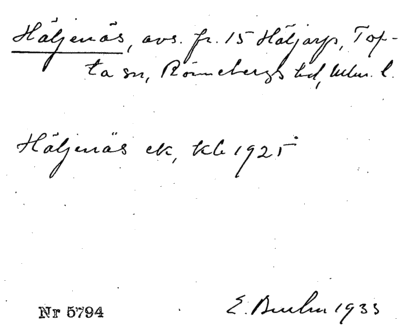 Häljenäs, avs. fr. 15 Häljarp, Tof-
ta sn, Rönnebergs hd, Mlm. l.
Häljenäs ek, kb 1925
Nr 5794
E. 1933